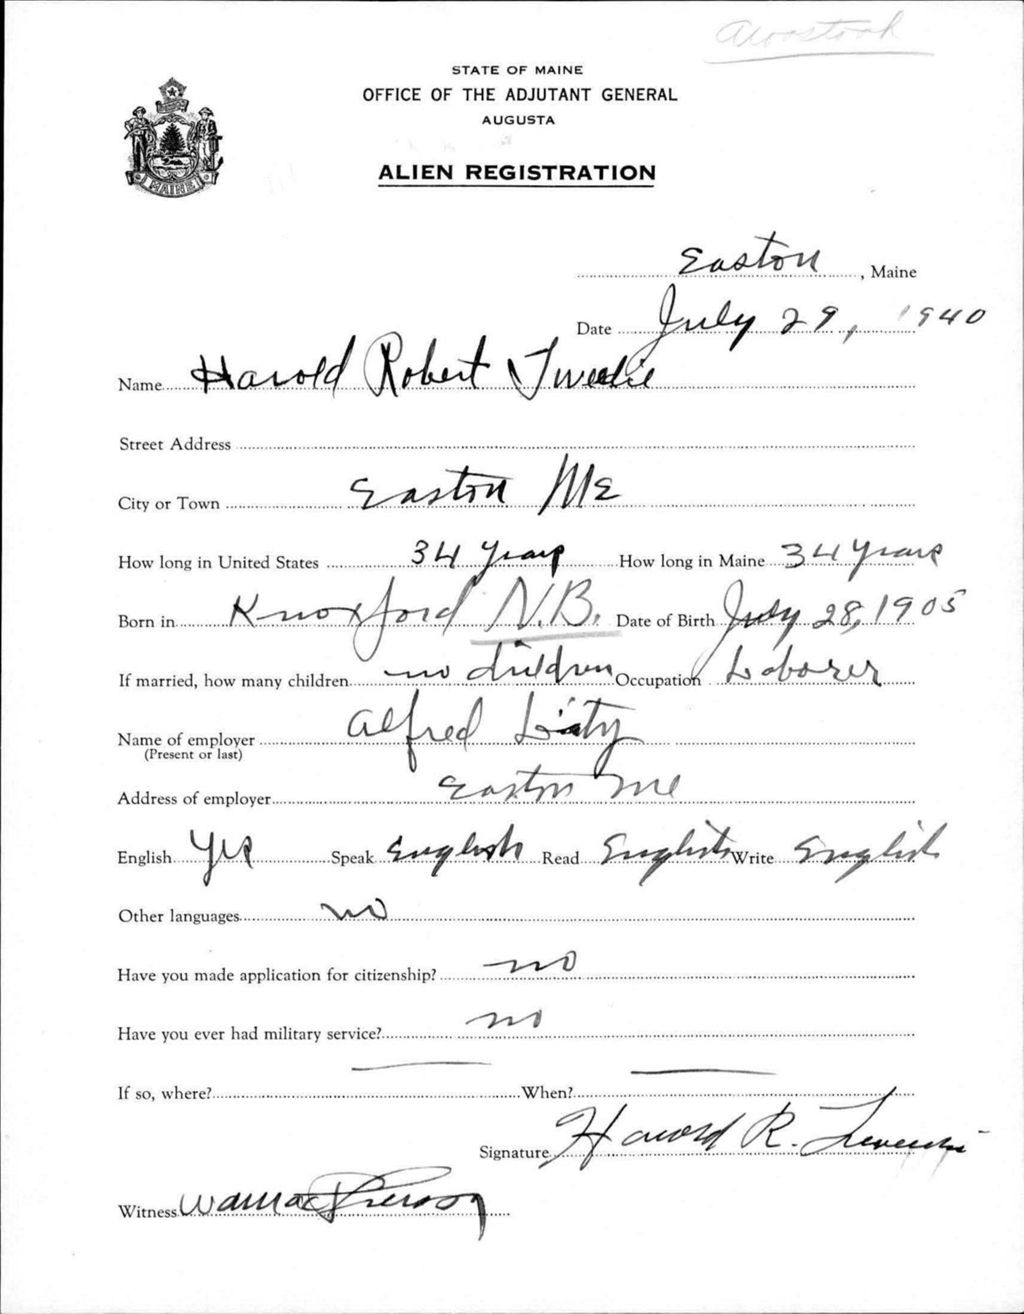 Aroostook
STATE OF MAINE
OFFICE OF THE ADJUTANT GENERAL
AUGUSTA
ALIEN REGISTRATION
MAINE
Easton, Maine
Date July 29, 1940
Name Harold Robert Tweedie
Street Address
City or Town Easton Me
How long in United States 34 years How long in Maine 34 years
Born in Knoxford N.B. Date of Birth July 28, 1905
If married, how many children no children Occupation Laborer
Name of employer Alfred
(Present or last)
Address of employer Easton Me
English Yes Speak English Read English Write English
Other languages no
Have you made application for citizenship? no
Have you ever had military service? no
If so, where? — When? —
Signature Harold R.
Witness